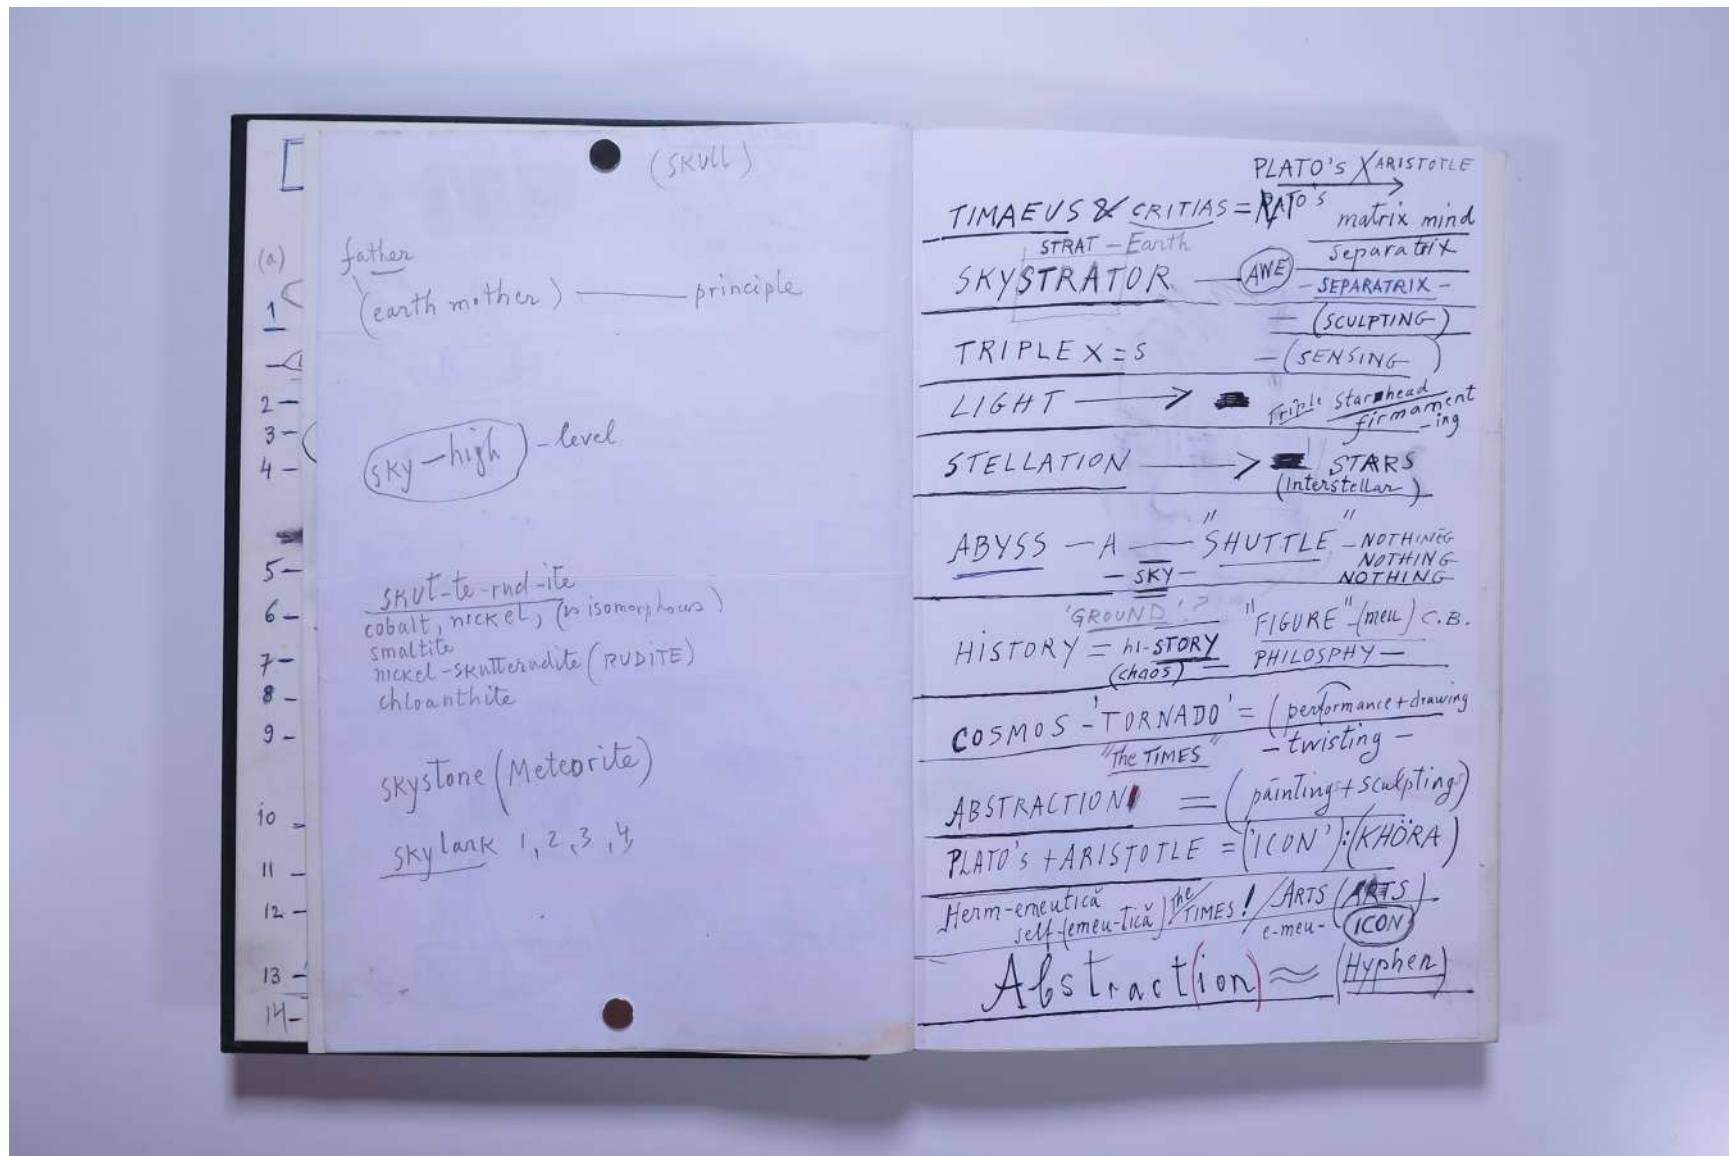 (a)
1
2 —
3 —
4 —
5 —
6 —
7 —
8 —
9 —
10 —
11 —
12 —
13 —
14 —
(SKULL)
father
(earth mother) —— principle
sky—high - level
skut-te-rud-ite
cobalt, nickel, (isomorphous)
smaltite
nickel-skutterudite (RUDITE)
chloanthite
skystone (Meteorite)
skylark 1, 2, 3, 4,
PLATO'S X ARISTOTLE
TIMAEUS & CRITIAS = PLATO'S matrix mind
STRAT — Earth
separatrix
SKYSTRATOR — AWE - SEPARATRIX -
= (SCULPTING)
TRIPLEX = S - (SENSING)
LIGHT → Triple Star head
firmament
-ing
STELLATION → STARS
(Interstellar)
ABYSS — A — "SHUTTLE" - NOTHINEG
— SKY — NOTHING
NOTHING
'GROUND'? "FIGURE" - (meu) C.B.
HISTORY = hi-STORY = PHILOSPHY —
(chaos)
COSMOS - 'TORNADO' = (performance + drawing
"The TIMES" - twisting -
ABSTRACTION = (paintings + sculptings)
PLATO'S + ARISTOTLE = ('ICON') : (KHÖRA)
Herm-eneutică the TIMES! / ARTS (ARTS)
self-(emeu-tică) e-meu- ICON
Abstract(ion) ≈ (Hyphen)